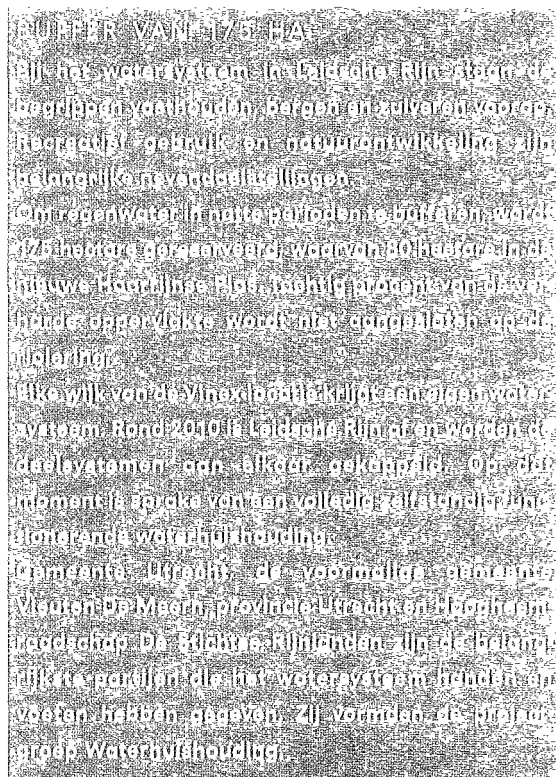 BUFFER VAN 175 HA
Bij het watersysteem in Leidsche Rijn staan de
begrippen vasthouden, bergen en zuiveren voorop.
Recreatief gebruik en natuurontwikkeling zijn
belangrijke nevendoelstellingen.
Om regenwater in natte perioden te bufferen, wordt
175 hectare gereserveerd, waarvan 80 hectare in de
nieuwe Haarrijnse Plas. Tachtig procent van de ver-
harde oppervlakte wordt niet aangesloten op de
riolering.
Elke wijk van de Vinex-locatie krijgt een eigen water-
systeem. Rond 2010 is Leidsche Rijn af en worden de
deelsystemen aan elkaar gekoppeld. Op dat
moment is sprake van een volledig zelfstandig func-
tionerende waterhuishouding.
Gemeente Utrecht, de voormalige gemeente
Vleuten-De Meern, provincie Utrecht en Hoogheem-
raadschap De Stichtse Rijnlanden zijn de belang-
rijkste partijen die het watersysteem handen en
voeten hebben gegeven. Zij vormden de project-
groep Waterhuishouding.